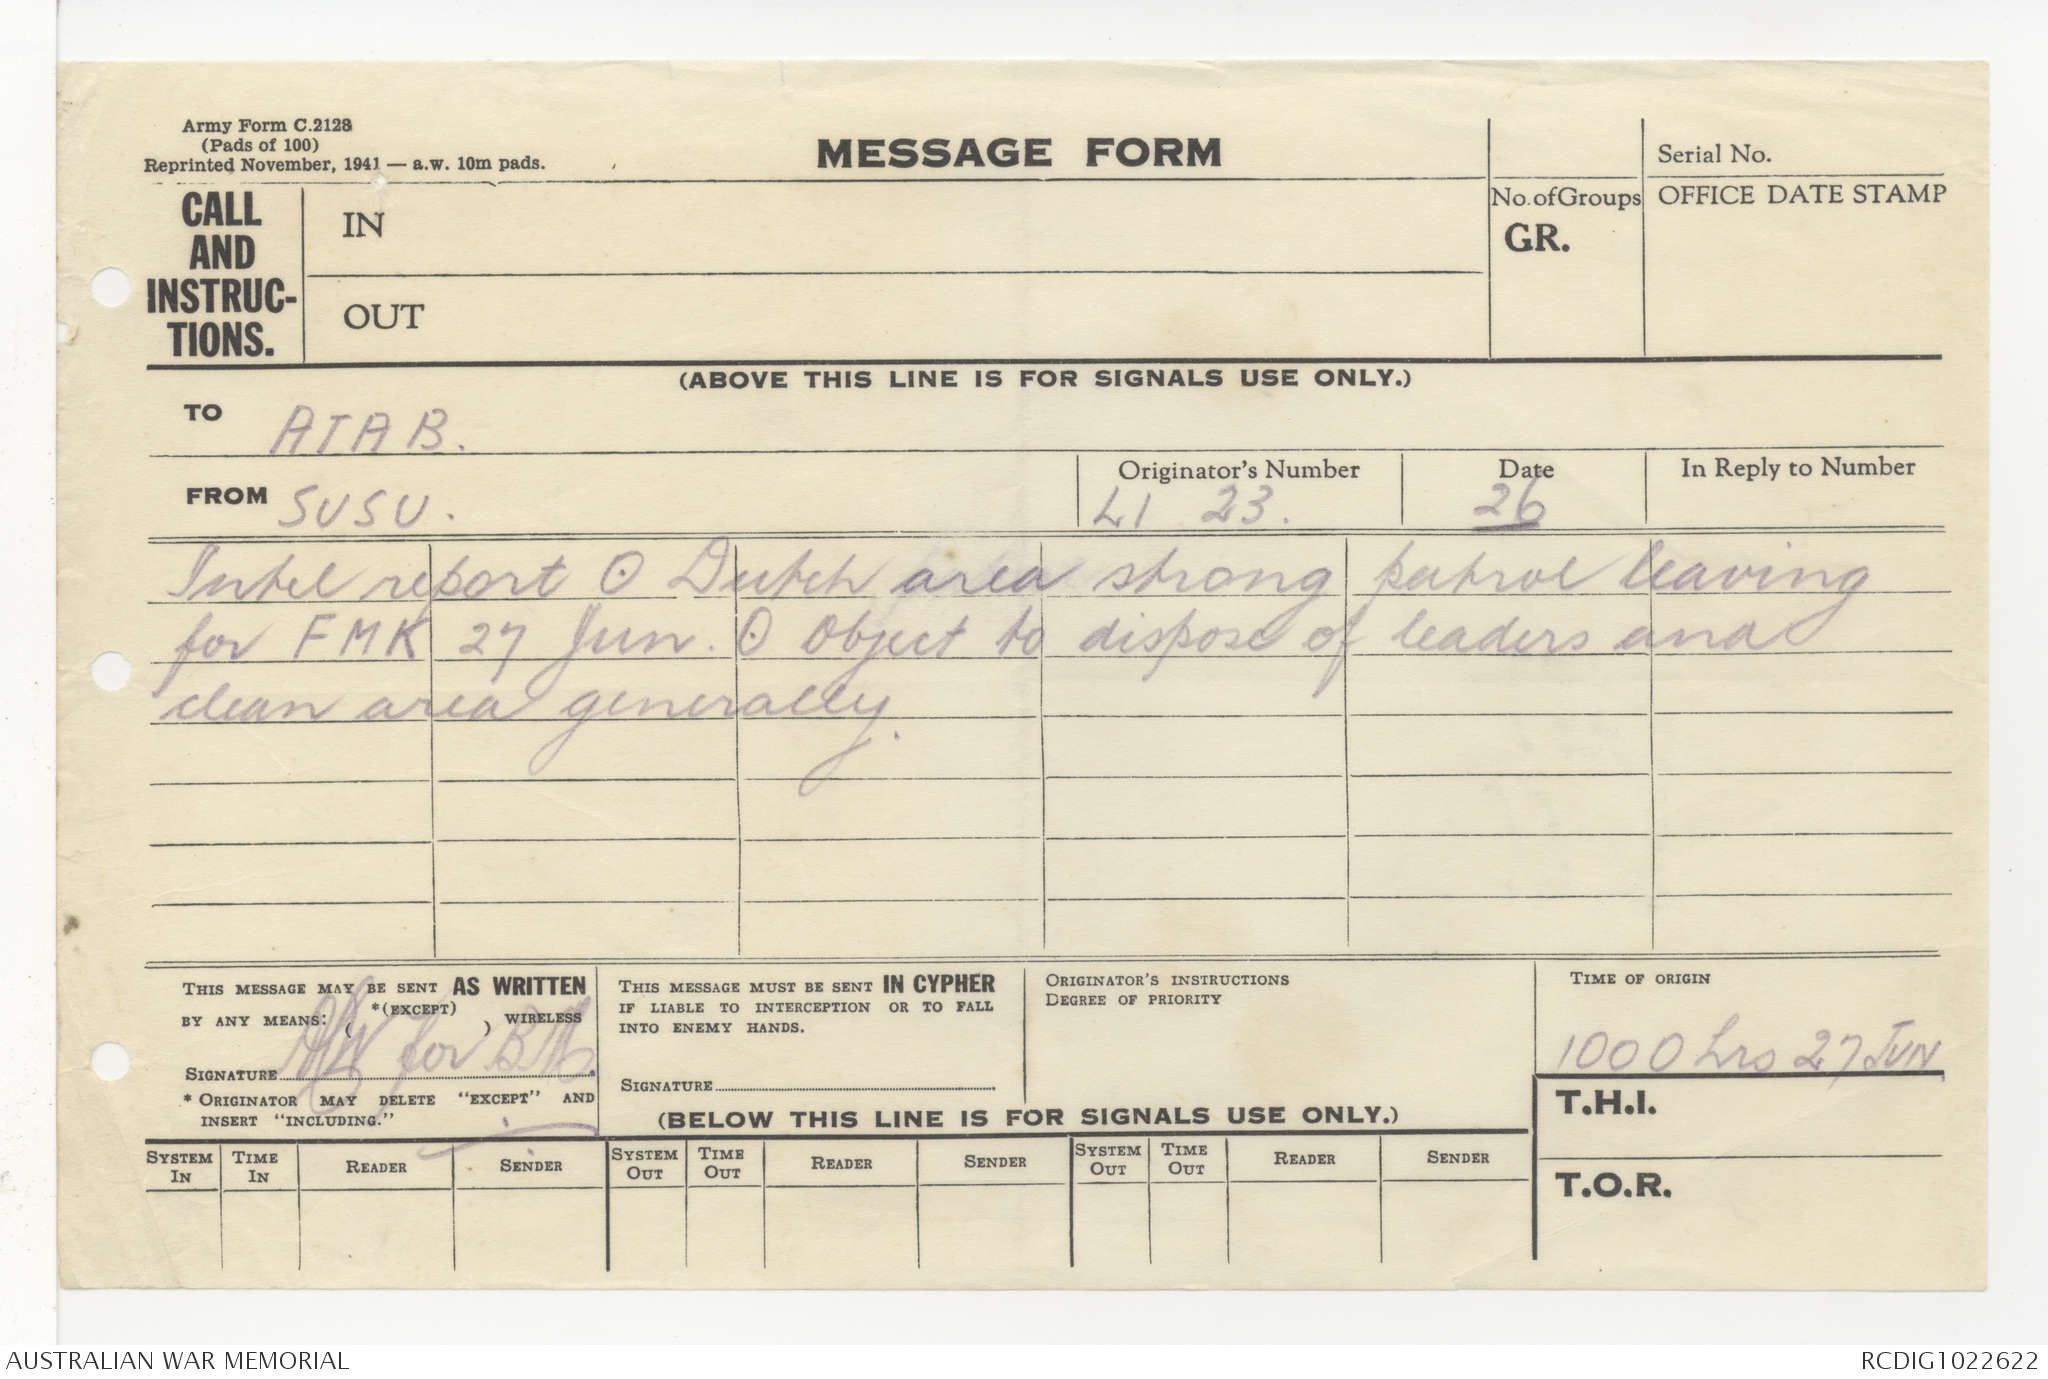 Army Form C.2128
(Pads of 100)
Reprinted November, 1941 — a.w. 10m pads.
MESSAGE FORM
Serial No.
CALL AND INSTRUC-TIONS.
IN
OUT
No. of Groups
GR.
OFFICE DATE STAMP
(ABOVE THIS LINE IS FOR SIGNALS USE ONLY.)
TO ATAB.
FROM SUSU.
Originator's Number
LI 23.
Date
26
In Reply to Number
Intel report ⊙ Dutch area strong patrol leaving
for FMK 27 Jun. ⊙ Object to dispose of leaders and
clean area generally.
THIS MESSAGE MAY BE SENT AS WRITTEN
*(EXCEPT)
BY ANY MEANS: ( ) WIRELESS
SIGNATURE for BM.
* ORIGINATOR MAY DELETE "EXCEPT" AND
INSERT "INCLUDING."
THIS MESSAGE MUST BE SENT IN CYPHER
IF LIABLE TO INTERCEPTION OR TO FALL
INTO ENEMY HANDS.
SIGNATURE
ORIGINATOR'S INSTRUCTIONS
DEGREE OF PRIORITY
TIME OF ORIGIN
1000 hrs 27 JUN
(BELOW THIS LINE IS FOR SIGNALS USE ONLY.)
T.H.I.
T.O.R.
SYSTEM IN TIME IN READER SENDER SYSTEM OUT TIME OUT READER SENDER SYSTEM OUT TIME OUT READER SENDER
AUSTRALIAN WAR MEMORIAL RCDIG1022622